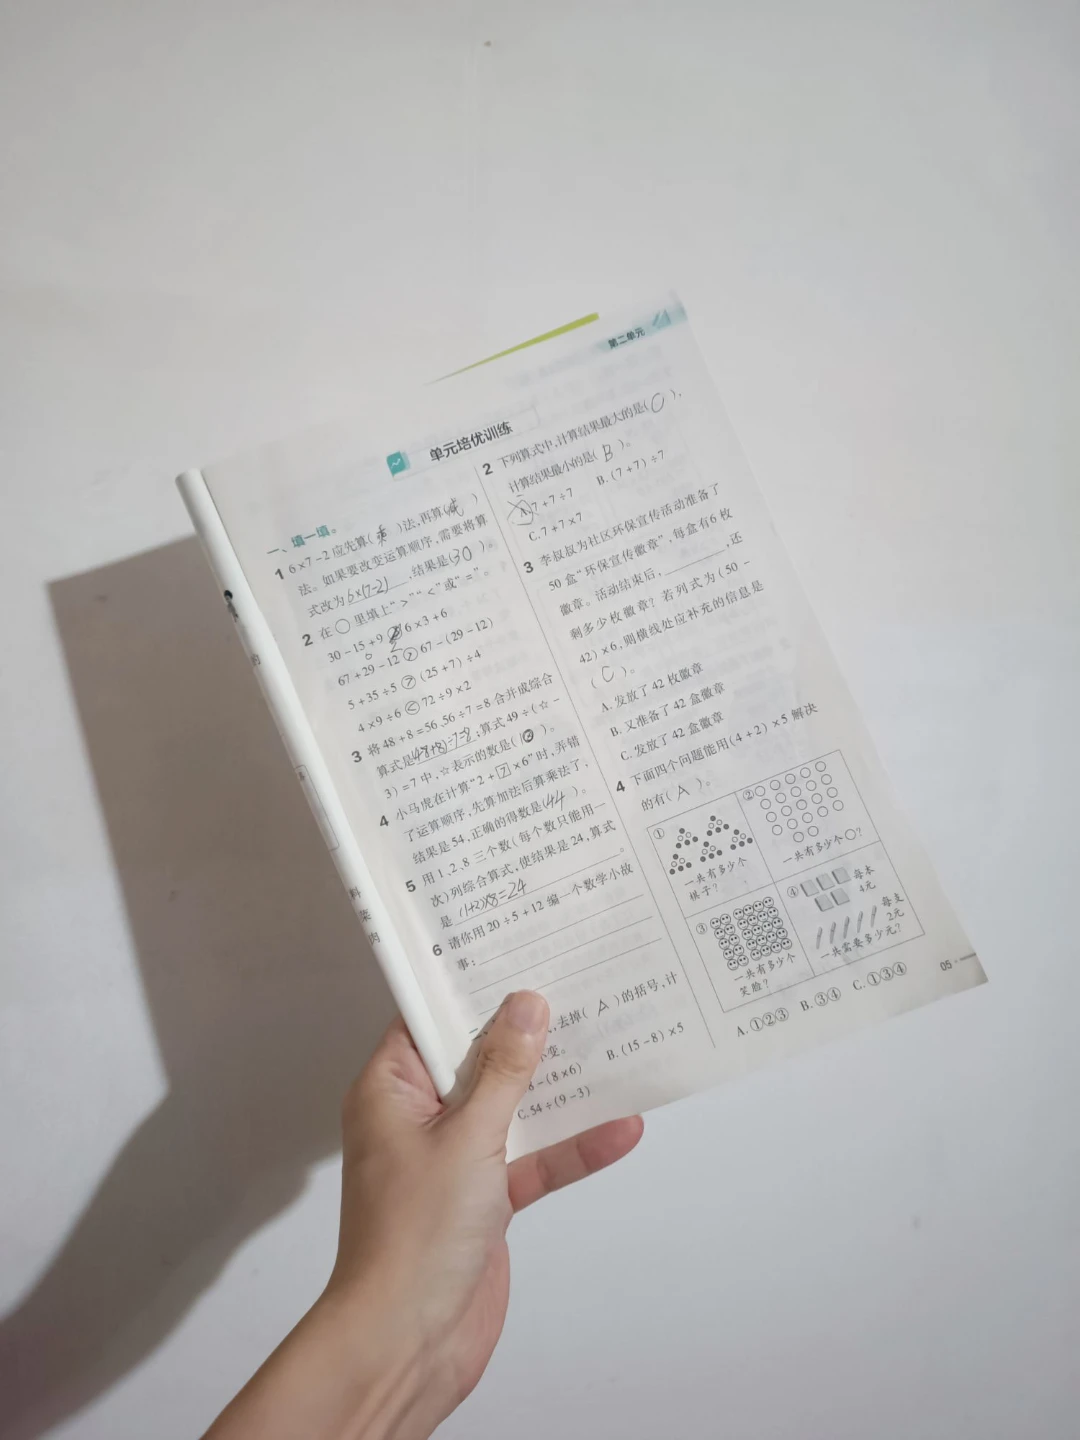 第二单元
单元培优训练
一、填一填。
1 6×7-2应先算(乘)法,再算(减)
法。如果要改变运算顺序,需要将算
式改为6×(7-2),结果是(30)。
2 在○里填上“>”“<”或“=”。
30-15+9 6×3+6
67+29-12>67-(29-12)
5+35÷5>(25+7)÷4
4×9÷6<72÷9×2
3 将48+8=56,56÷7=8合并成综合
算式是(48+8)÷7=8;算式49÷(☆-
3)=7中,☆表示的数是(10)。
4 小马虎在计算“2+7×6”时,弄错
了运算顺序,先算加法后算乘法了,
结果是54,正确的得数是(44)。
5 用1、2、8三个数(每个数只能用一
次)列综合算式,使结果是24,算式
是(1+2)×8=24。
6 请你用20÷5+12编一个数学小故
事:
,去掉(A)的括号,计
不变。
8-(8×6) B.(15-8)×5
C.54÷(9-3)
2 下列算式中,计算结果最大的是(C),
计算结果最小的是(B)。
A.7+7÷7 B.(7+7)÷7
C.7+7×7
3 李叔叔为社区环保宣传活动准备了
50盒“环保宣传徽章”,每盒有6枚
徽章。活动结束后,,还
剩多少枚徽章?若列式为(50-
42)×6,则横线处应补充的信息是
(C)。
A.发放了42枚徽章
B.又准备了42盒徽章
C.发放了42盒徽章
4 下面四个问题能用(4+2)×5解决
的有(A)。
① ②
一共有多少个
棋子?
一共有多少个○?
③ ④
每本
4元
每支
2元
一共有多少个
笑脸?
一共需要多少元?
A.①②③ B.③④ C.①③④
05
料
菜
肉